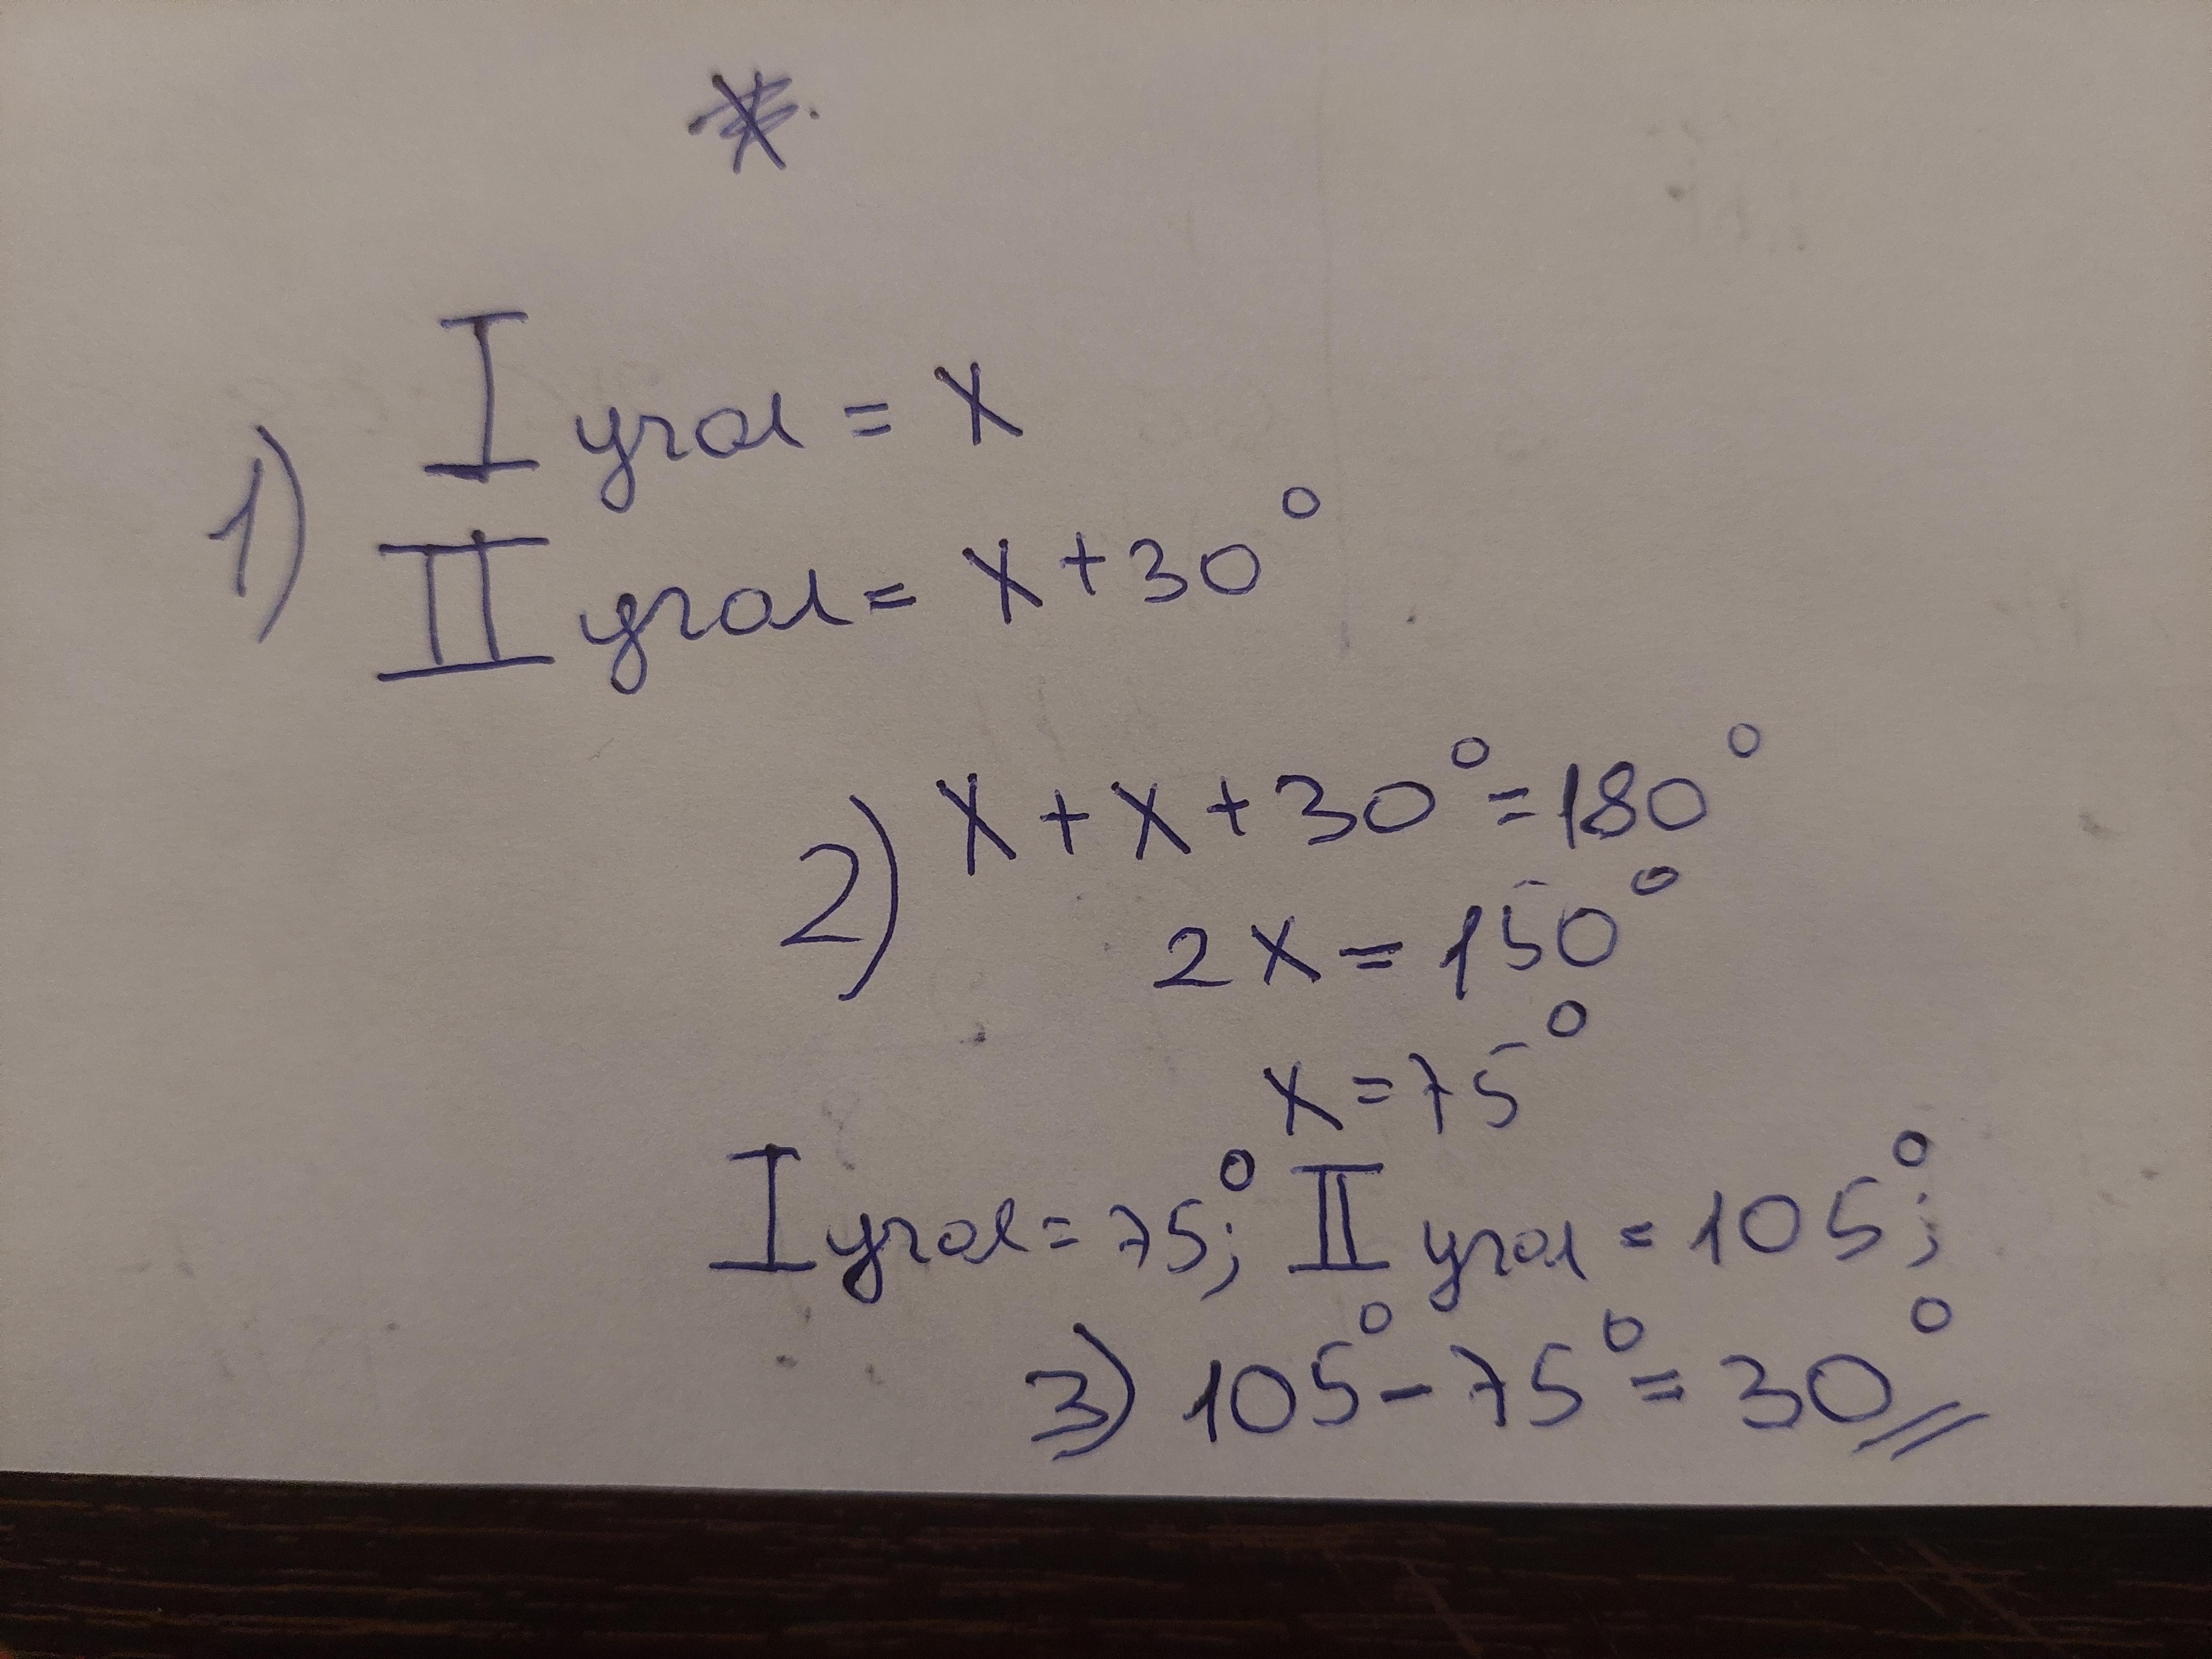 1) I угол = x
II угол = x + 30°
2) x + x + 30° = 180°
2x = 150°
x = 75°
I угол = 75°; II угол = 105°;
3) 105° - 75° = 30°